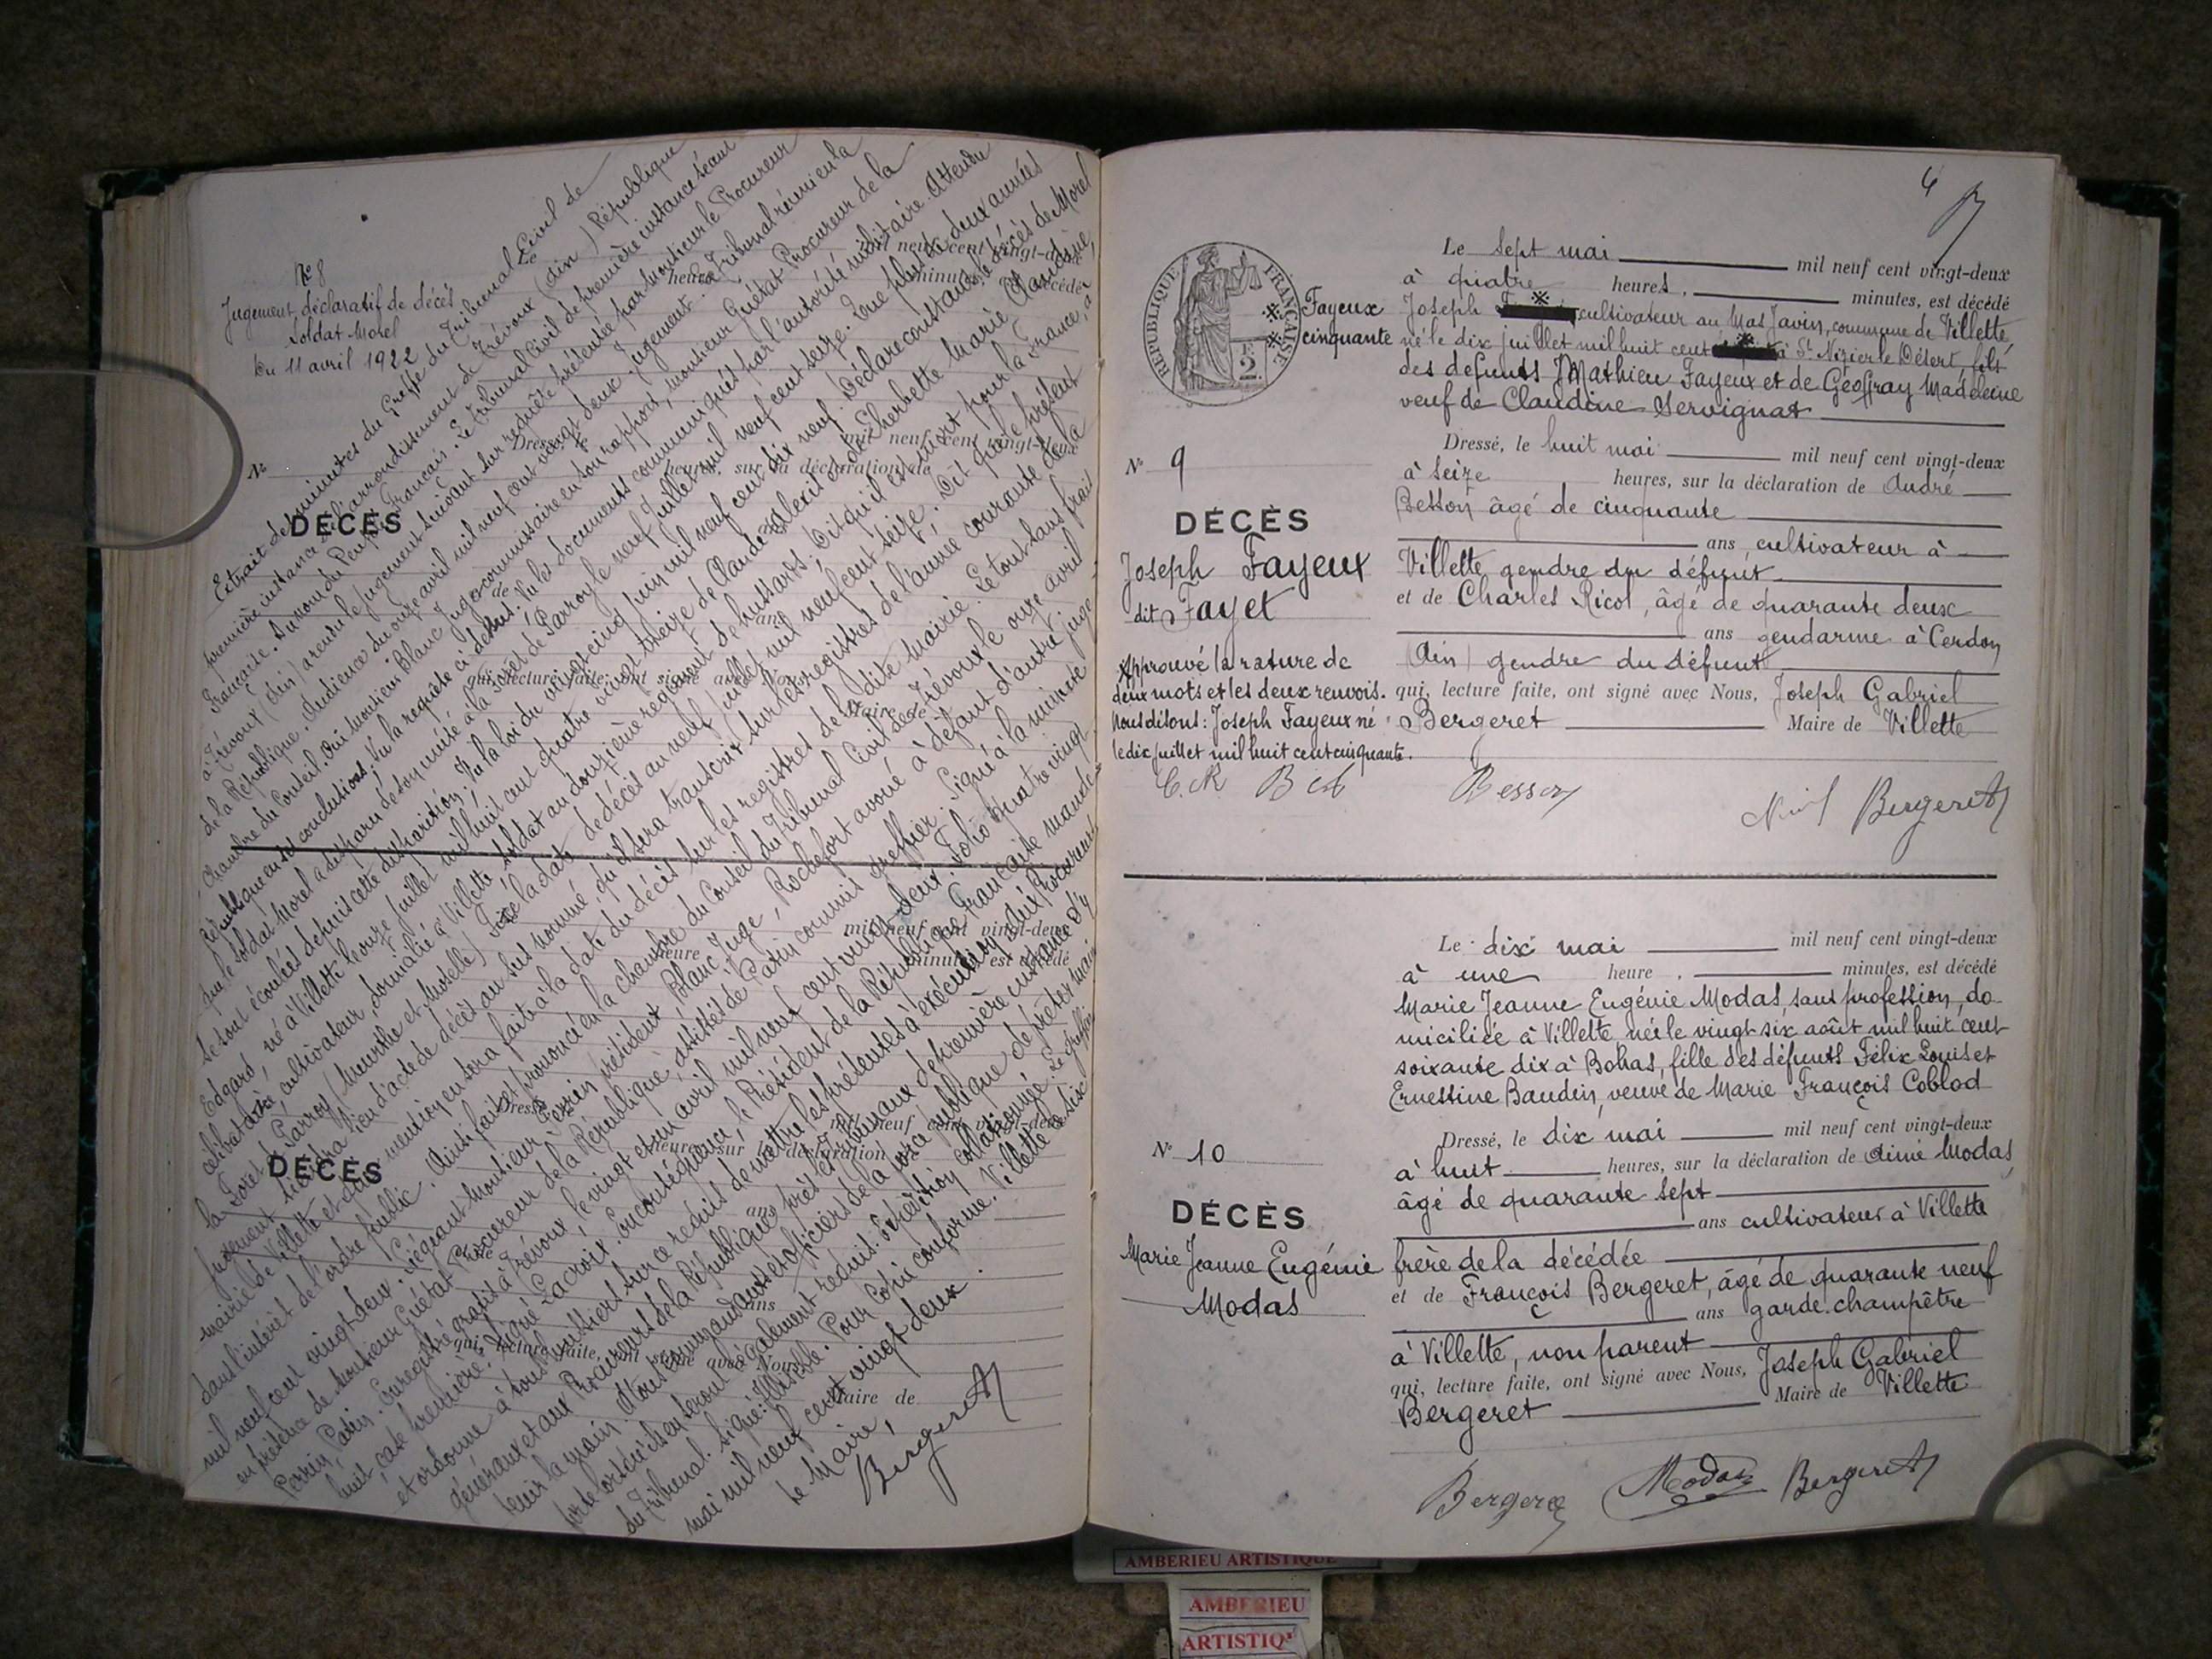 N° 8
Jugement déclaratif de décès
Soldat Morel
Du 11 avril 1922
N°
DÉCÈS
Extrait des minutes du Greffe du Tribunal Civil de
première instance de l'arrondissement de Trévoux (Ain) République
Française. Au nom du Peuple Français. Le Tribunal Civil de première instance séant
à Trévoux (Ain) a rendu le jugement suivant sur requête présentée par Monsieur le Procureur
de la République. Audience du onze avril mil neuf cent vingt deux. Jugement. Le Tribunal réuni en la
Chambre du Conseil. Oui Monsieur Blanc Juge-commissaire en son rapport, Monsieur Guétat Procureur de la
République en ses conclusions. Vu la requête ci dessus. Vu les documents communiqués par l'autorité militaire. Attendu
que le soldat Morel a disparu de son unité à la forêt de Parroy le neuf juillet mil neuf cent seize. Que plus de deux années
se sont écoulées depuis cette disparition. Vu la loi du vingt cinq juin mil neuf cent dix neuf. Déclare constant le décès de Morel
Edgard, né à Villette le onze juillet mil huit cent quatre vingt treize de Claude Alexis et de Cherbette Marie Claudine,
célibataire, cultivateur, domicilié à Villette soldat au douzième régiment de hussards. Dit qu'il est mort pour la France, à
la Foret de Parroy (Meurthe et Moselle). Fixe la date de décès au neuf juillet mil neuf cent seize. Dit que le présent
jugement tiendra lieu d'acte de décès au sus nommé, qu'il sera transcrit sur les registres de l'année courante de la
mairie de Villette et que mention en sera faite à la date du décès sur les registres de la dite mairie. Le tout sans frais
dans l'intérêt de l'ordre public. Ainsi fait et prononcé en la chambre du Conseil du Tribunal Civil de Trévoux le onze avril
mil neuf cent vingt deux. Siégeant Monsieur Perrin président Blanc Juge, Rochefort avoué à défaut d'autre juge
en présence de Monsieur Guétat Procureur de la République assistés de Patin commis greffier. Signé à la minute
Perrin, Patin. Enregistré gratis à Trévoux le vingt et un avril mil neuf cent vingt deux. Folio quatre vingt
huit case première. Signé Lacroix. En conséquence, le Président de la République Française mande
et ordonne à tous huissiers sur ce requis de mettre les présentes à exécution, aux Procureurs
généraux et aux Procureurs de la République près les tribunaux de première instance d'y
tenir la main. A tous commandants et officiers de la force publique de prêter main
forte lorsqu'ils en seront légalement requis. Expédition collationnée. Le greffier
du Tribunal. Signé: Illisible. Pour copie conforme. Villette le six
mai mil neuf cent vingt deux.
Le Maire,
Bergeret
DÉCÈS
RÉPUBLIQUE FRANÇAISE
2
※ Fayeux
※ cinquante
Le sept mai mil neuf cent vingt-deux
à quatre heures, minutes, est décédé
Joseph ※ cultivateur au Mas Javin, commune de Villette
né le dix juillet mil huit cent ※ à St Nizier le Désert, fils
des defunts Mathieu Fayeux et de Geoffray Madeleine
veuf de Claudine Servignat
Dressé, le huit mai mil neuf cent vingt-deux
à seize heures, sur la déclaration de André
Besson âgé de cinquante
ans, cultivateur à
Villette, gendre du défunt
et de Charles Ricol, âgé de quarante deux
ans gendarme à Cerdon
(Ain) gendre du défunt
qui, lecture faite, ont signé avec Nous, Joseph Gabriel
Bergeret Maire de Villette
N° 9
DÉCÈS
Joseph Fayeux
dit Fayet
Approuvé la rature de
deux mots et les deux renvois.
Nous disons: Joseph Fayeux né
le dix juillet mil huit cent cinquante.
Besson
Bergeret
Le dix mai mil neuf cent vingt-deux
à une heure, minutes, est décédé
Marie Jeanne Eugénie Modas, sans profession, do
miciliée à Villette née le vingt six août mil huit cent
soixante dix à Bohas, fille des défunts Félix Louis et
Ernestine Baudin, veuve de Marie François Coblod
Dressé, le dix mai mil neuf cent vingt-deux
à huit heures, sur la déclaration de Aimé Modas,
âgé de quarante sept
ans cultivateur à Villette
frère de la décédée
et de François Bergeret, âgé de quarante neuf
ans garde-champêtre
à Villette, non parent
qui, lecture faite, ont signé avec Nous, Joseph Gabriel
Bergeret Maire de Villette
N° 10
DÉCÈS
Marie Jeanne Eugénie
Modas
Bergeret Modas Bergeret
AMBERIEU ARTISTIQUE
AMBERIEU
ARTISTIQ